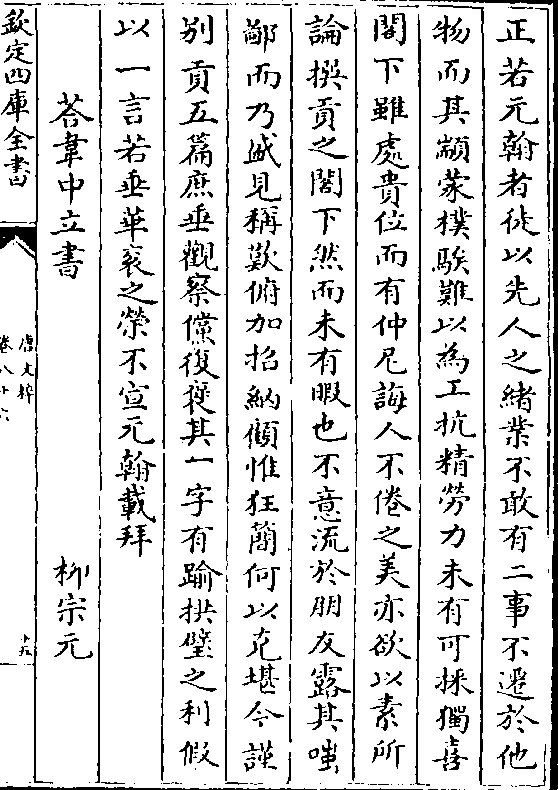 正若元翰者徒以先人之緒業不敢有二事不遷於他
物而其顓蒙樸騃難以為工抗精勞力未有可採獨喜
閣下雖處貴位而有仲尼誨人不倦之美亦欲以素所
論撰貢之閣下然而未有暇也不意流於朋友露其嗤
鄙而乃盛見稱歎俯加招納顧惟狂簡何以克堪今謹
別貢五篇庶垂觀察儻復褒其一字有踰拱璧之利假
以一言若垂華衮之榮不宣元翰載拜
荅韋中立書 柳宗元
欽定四庫全書
唐文粹
卷八十六